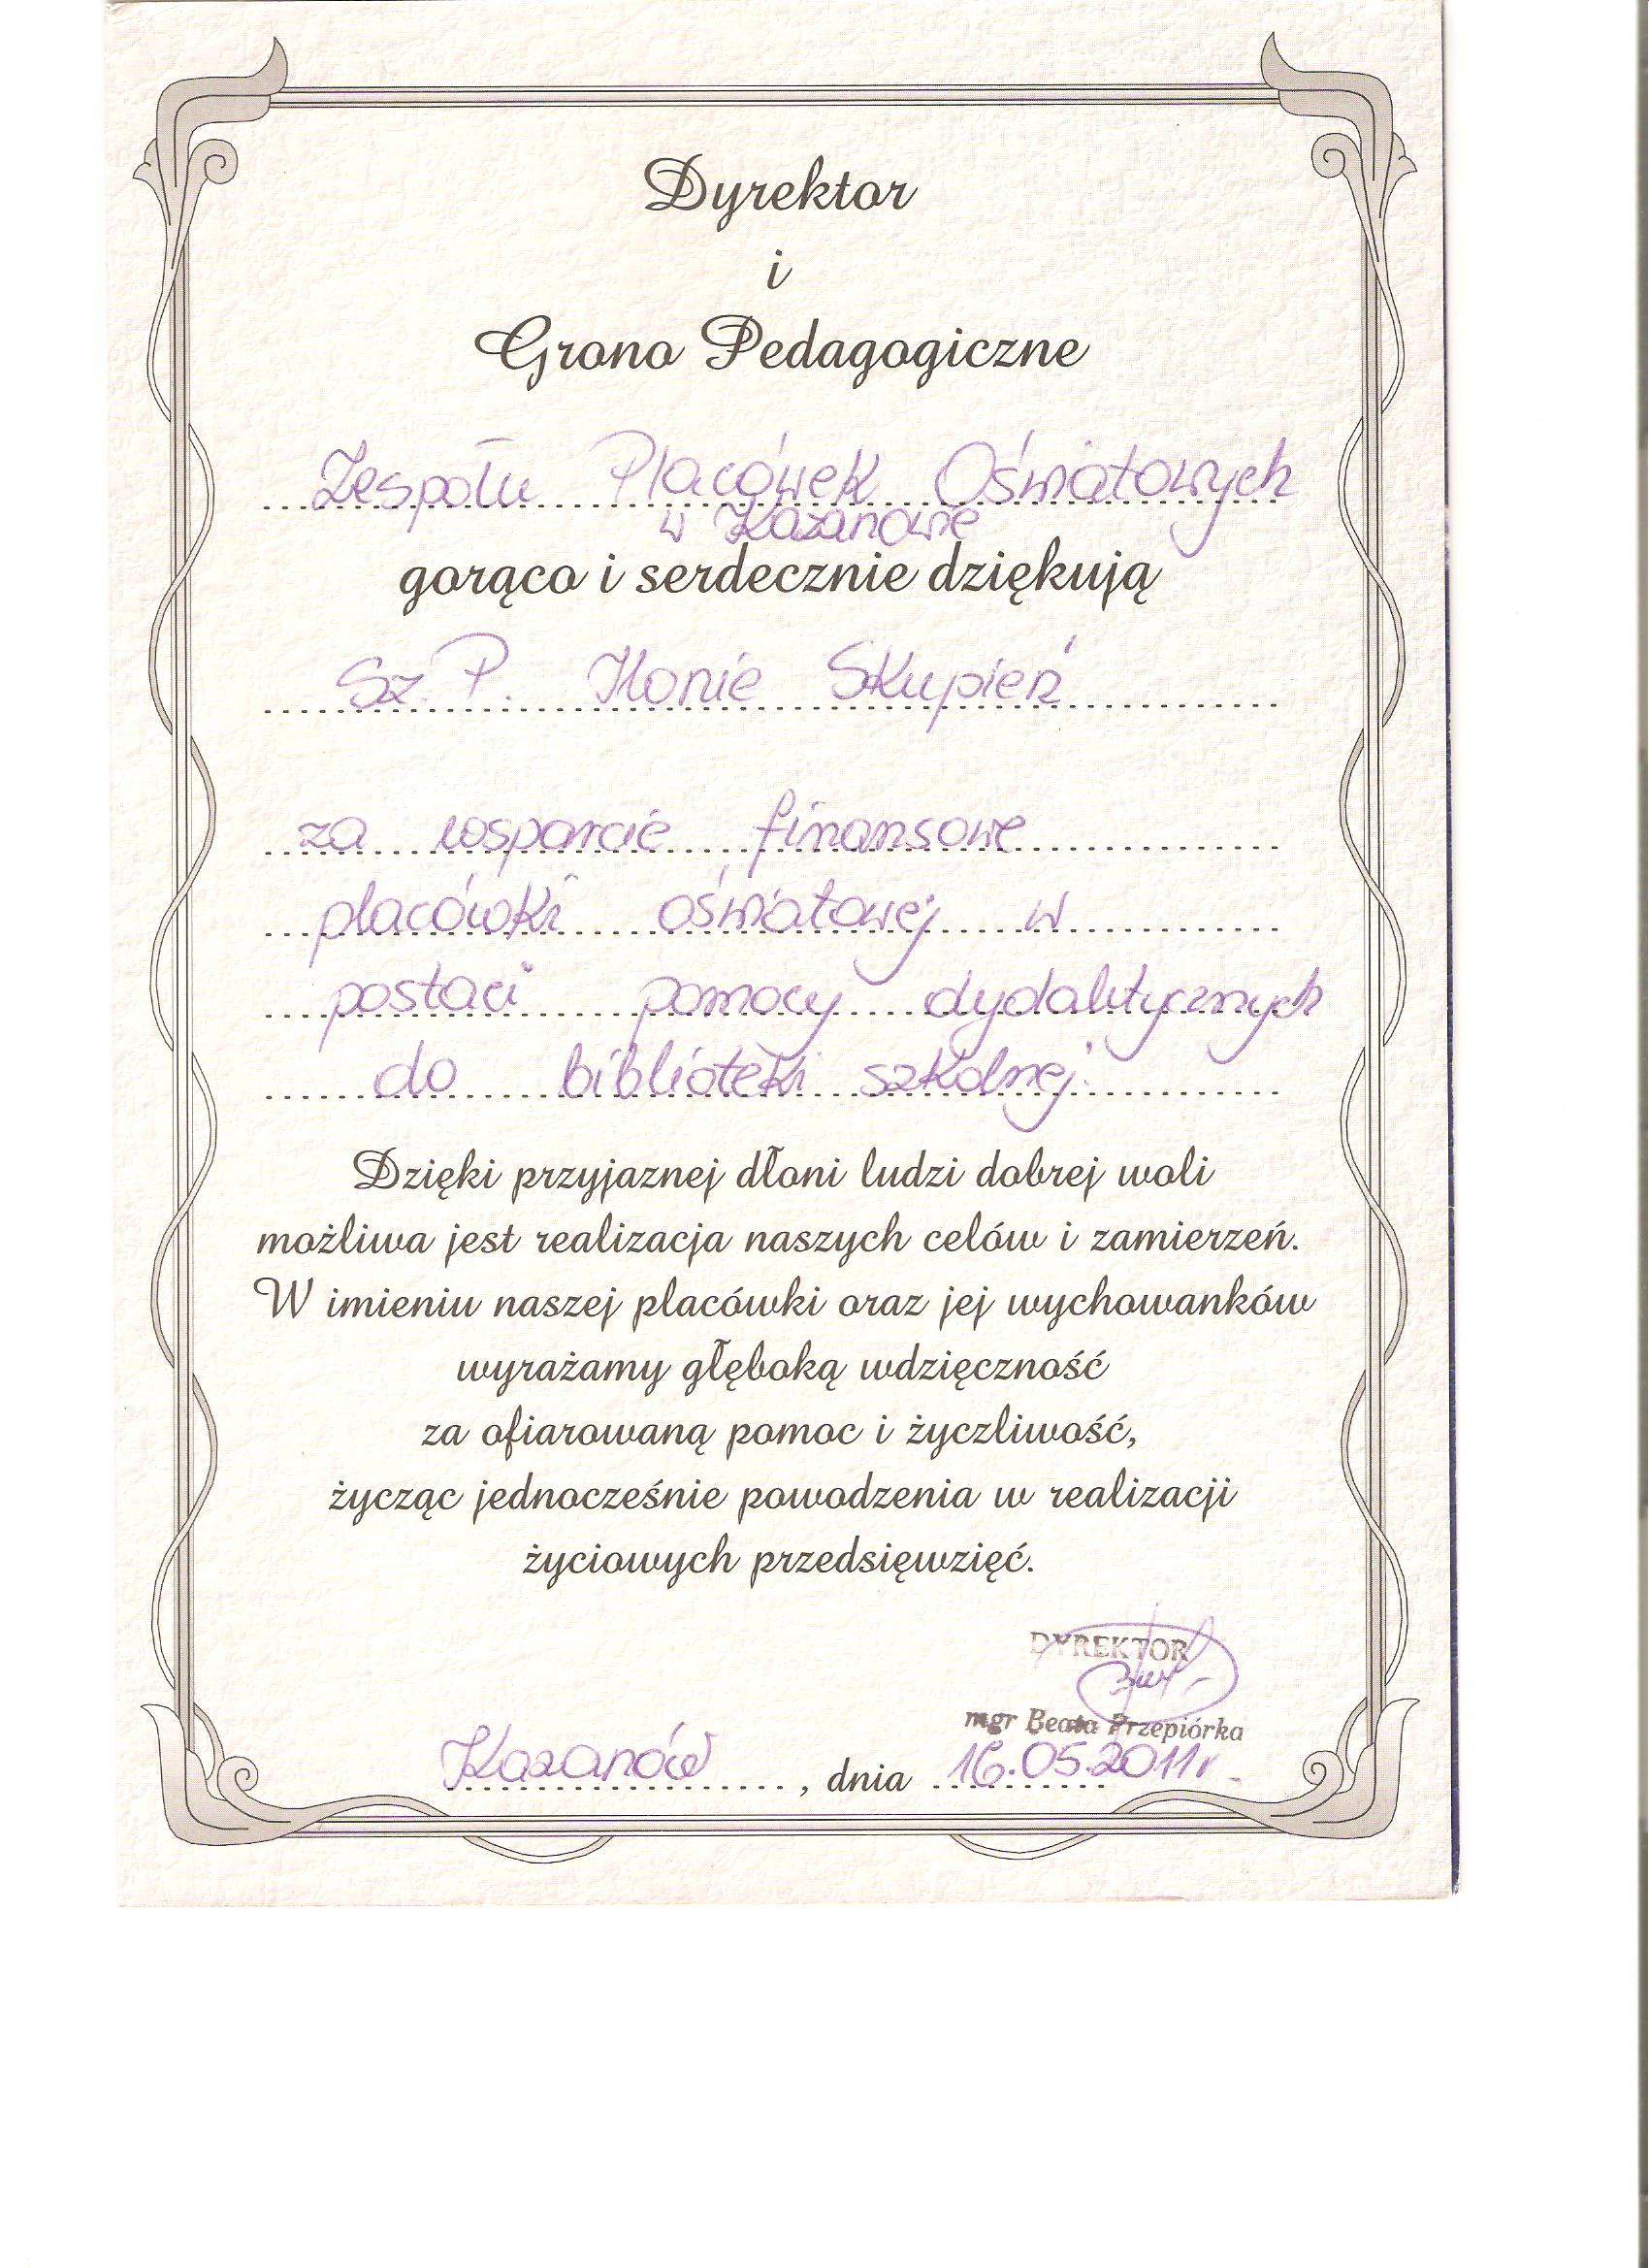 Dyrektor
i
Grono Pedagogiczne
Zespołu Placówek Oświatowych
w Kazanowie
gorąco i serdecznie dziękują
Sz. P. Ilonie Skupień
za wsparcie finansowe
placówki oświatowej w
postaci pomocy dydaktycznych
do biblioteki szkolnej.
Dzięki przyjaznej dłoni ludzi dobrej woli
możliwa jest realizacja naszych celów i zamierzeń.
W imieniu naszej placówki oraz jej wychowanków
wyrażamy głęboką wdzięczność
za ofiarowaną pomoc i życzliwość,
życząc jednocześnie powodzenia w realizacji
życiowych przedsięwzięć.
DYREKTOR
mgr Beata Przepiórka
Kazanów, dnia 16.05.2011r.